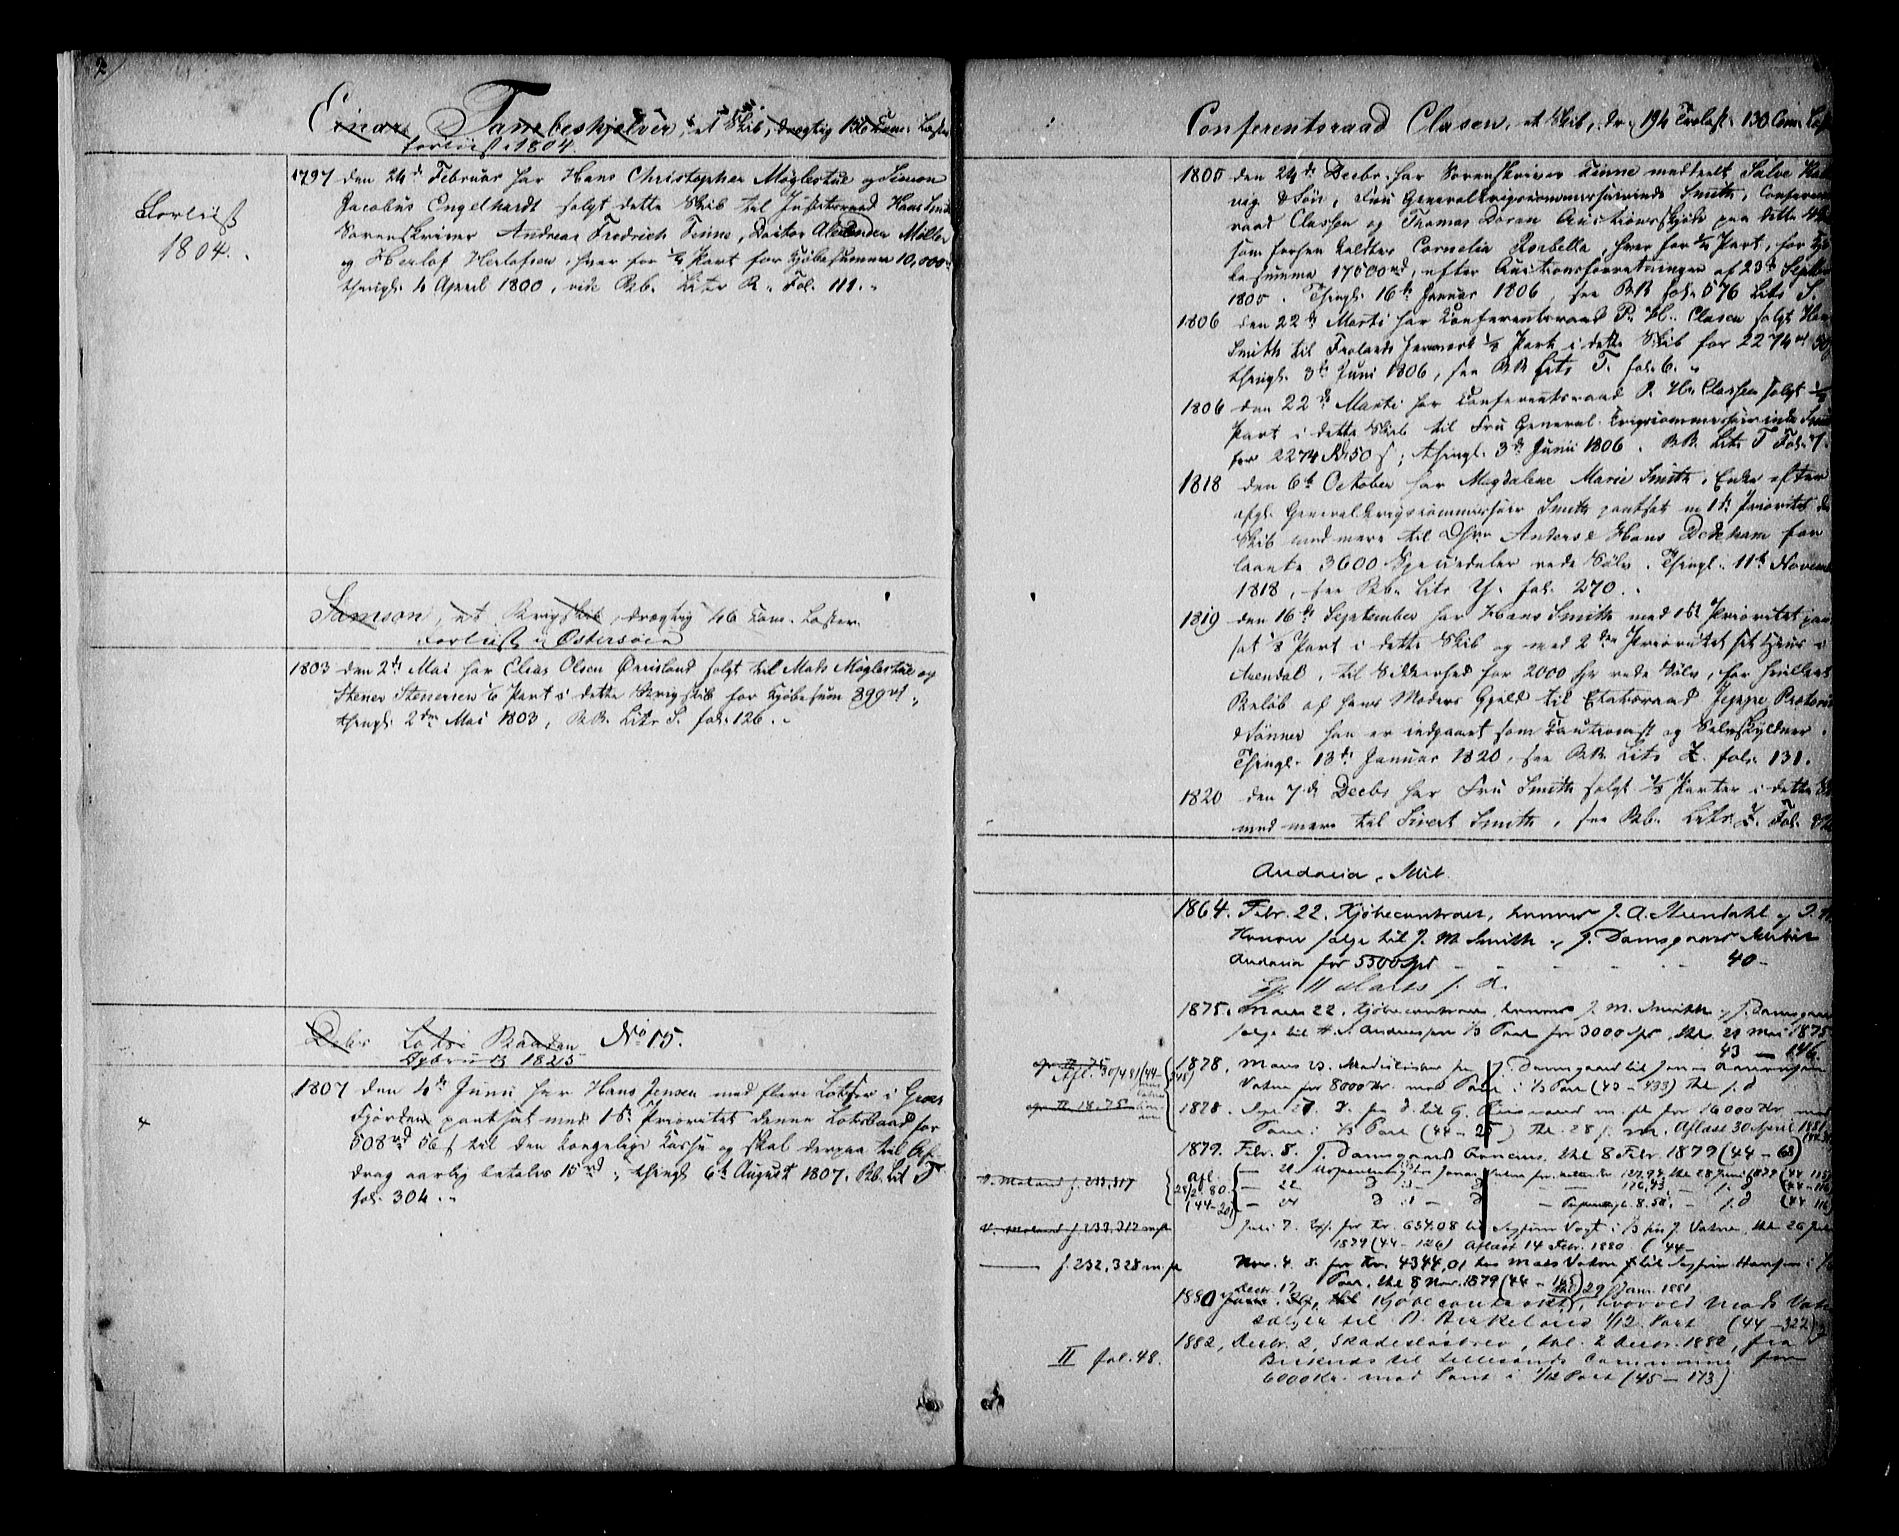 2
Einar Tambeskjelver, et Skib, drægtig 156 Com. Læster
forliist 1804.
Forliist
1804.
1797 den 24de Februar har Hans Christopher Møglestue og Simon
Jacobus Engelhardt solgt dette Skib til Justitsraad Hans Smith
Sorenskriver Andreas Fredrich Finne, Doctor Alexander Møller
og Herlof Herlofsen, hver for ¼ Part for Kjøbesumma 10,000
thingl. 4 April 1800, vide Pb. Litr R. Fol. 111.
Samson, et Brigskib, drægtig 46 Com. Læster
Forliist i Østersøen
1803 den 2de Mai har Elias Olsen Ørrisland solgt til Mads Møglestue og
Stener Stenersen 1/6 Part i dette Brigskib for Kjøbesum 899 rd
thingl. 2den Mai 1803, PB. Litr S. fol. 126.
Debr Lods Baaden No 15.
Ophugg 1825
1807 den 4de Juni har Hans Jensen med flere Lodser i Groos
Fjorden pantsat med 1ste Prioritet denne Lodsbaad for
508 rd 56 s til den kongelige Kasse og skal derpaa til Af-
drag aarlig betales 15 rd, thingl. 6te August 1807. Pb. Lit T
fol. 304.
Conferentsraad Clasen, et Skib, dr. 194 Trelast 130 Com. Læst
1805 den 24de Decbr. har Sorenskriver Finne meddeelt Salve Kal
vig & Søn, Fru Generalkrigscommissairinde Smith, Conferents
raad Classen og Thomas Doran Auctionsskjøde paa dette Skib
som forhen kaldtes Cornelia Rosbella, hver for ¼ Part, for Kjø
besumma 17500 rd, efter Auctionsforretningen af 23de Septbr
1805. Thingl. 16de Januar 1806, see PB fol. 576 Litr S.
1806 den 22de Marti har Conferentsraad P. H. Clasen solgt Hans
Smith til Frolands Jernværk 1/8 Part i dette Skib for 2274 rd 50 s
thingl. 3de Juni 1806, see PB Litr T. fol. 6.
1806 den 22de Marti har Conferentsraad P. H. Classen solgt 1/8
Part i dette Skib til Fru General Krigscommissairinde Smith
for 2274 Rd 50 s; thingl. 3de Junii 1806. PB. Litr T Fol. 7.
1818 den 6te October har Magdalene Marie Smith, Enke efter
afgl. Generalkrigscommissair Smith pantsat m 1ste Prioritet dette
Skib med mere til Dhrr Anders & Hans Dedekam for
laante 3600 Speciedaler rede Sølv. Thingl. 11te Novemb
1818, see Pb. Litr Y. fol. 270.
1819 den 16de September har Hans Smith med 1ste Prioritet pant
sat 1/8 Part i dette Skib og med 2den Prioritet sit Huus i
Arendal, til Sikkerhed for 2000 Spr rede Sølv, for hvilket
Beløb af hans Moders Gjeld til Etatsraad Jeppe Prætorius
& Sønner han er indgaaet som Cautionist og Selvskyldner.
Thingl. 13de Januar 1820, see PB. Litr Z. fol. 131.
1820 den 7de Decbr har Fru Smith solgt 1/8 Parter i dette Skib
med mere til Sivert Smith, see Pb. Litr. Z. Fol. 82
Andacia, Skib.
1864. Febr. 22. Kjøbecontract, hvorved J. A. Stendahl og
Hansen sælge til J. M. Smith og J. Damsgaard Skibet
Andacia for 5500 Spd 40 -
Th. 11 Marts s. A.
1875. Marts 22. Kjøbecontract, hvorved J. M. Smith og J. Damsgaard
sælge til A. Andreassen 1/3 Part for 3000 Spd, thl. 29 Mai 1875
43 — 146.
1878. Marts 13. fra J. Damsgaard til Jonas
Vatne for 8000 Kr. med Pant i 1/3 Part (43 – 433) thl. s. d
1878. Apr 27. d. fra d. til G. m. fl. for 16 000 Kr. med
Pant i 1/3 Part (44 – 25) thl. 28 s. m. Aflæst 30 April 1881
1879. Febr. 8. J. Damsgaards Concurs, thl 8 Febr 1879 (44 – 68)
Afl. 30/4 81 (44–
II 75
II 18.75
V. Moland f. 233,317
Afl. 25/2 80. (44–201)
— 21 for Kr. 127,97, thl 28 Juni 1879 (44 – 115)
— 22 d d 176,43, s. d (44 – 116)
— 24 d d 8.58, s. d (44 116)
V. Moland f. 233,317 m. fl
Juli 7. for Kr. 654.08 til Vogt i 1/3 fra J. Vatne, thl. 26 Juli
1879 (44 – 126) Aflæst 14 Febr. 1880 (44 –
f. 232, 328 m. fl
Nov. 4. d. for Kr. 4344,01 hos Mads Vatne til Hansen i
Part, thl 8 Nov. 1879 (44 – 165)
1880 Decbr. 17 Kjøbecontract, hvorved Mads Vatne
sælger til B. Birkeland 1/12 Part (44 – 322) thl 29 Janr. 1881
II fol. 48.
1882, Decbr. 2, Skadesløsbrev, thl. 2 Decbr. 1882, fra
til Lillesands Commune for
6000 Kr. med Pant i 1/12 Part (45 – 173)